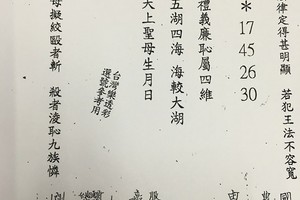 律定得甚明顯 若犯王法不容寬
* 17 45 26 30
禮義廉恥屬四維
五湖四海 海較大湖
天上聖母生月日
台灣樂透彩
選號參考用
母擬絞毆者斬 殺者淩恥九族憐